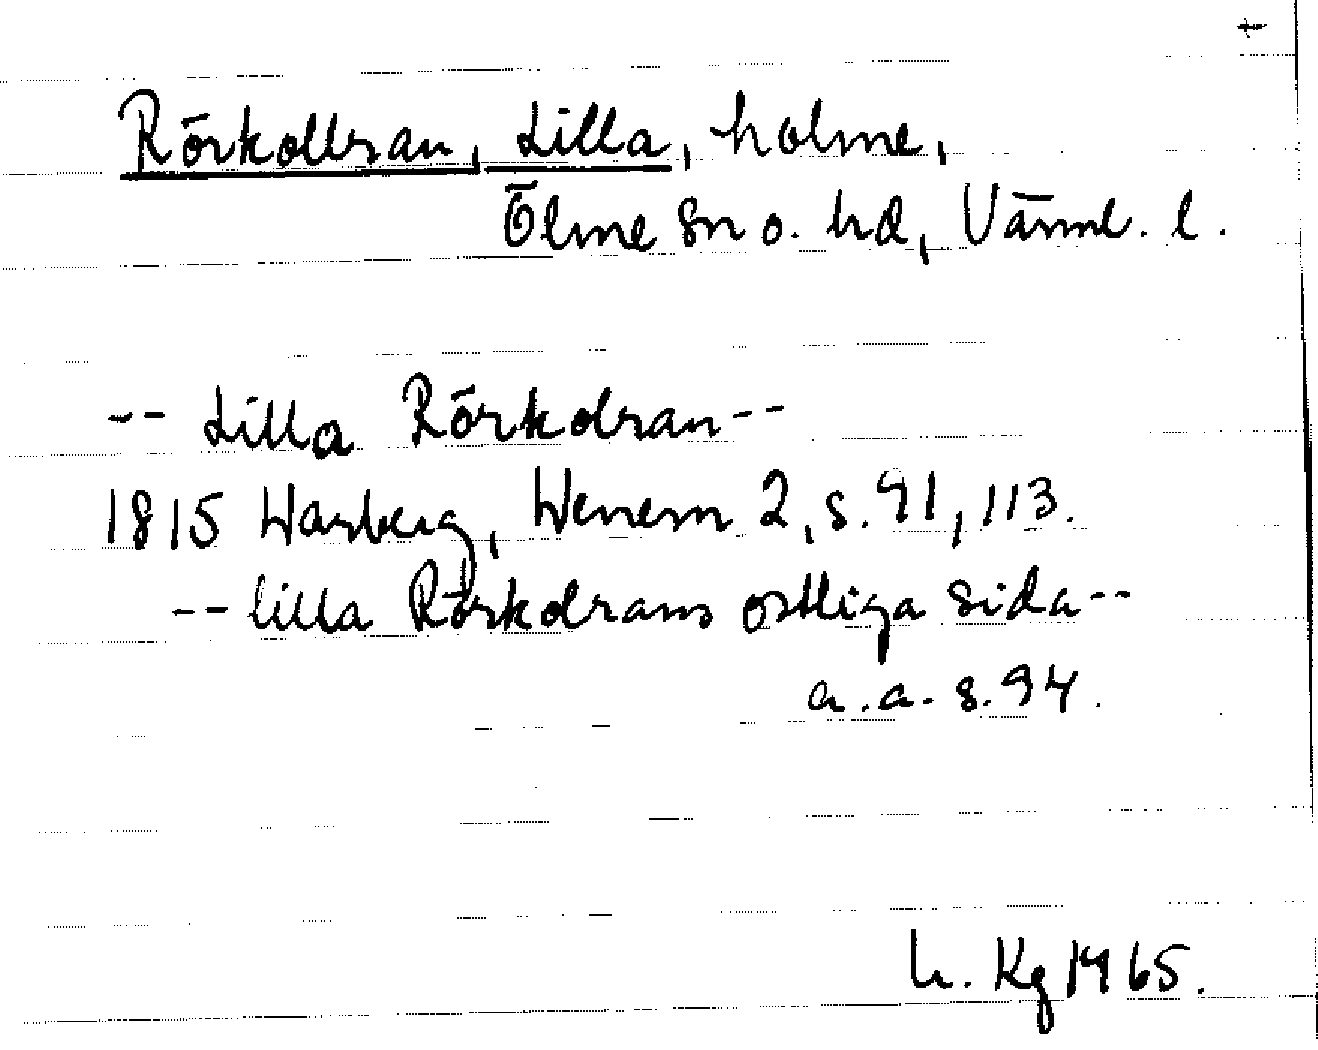 +
Rörkollran, Lilla, holme,
Ölme sn o. hd, Värml. l.
-- Lilla Rörkolran --
1815 Warberg, Wenern 2, s. 91, 113.
-- lilla Rörkolrans ostliga sida --
a.a. s. 94.
h. Kg 1965.